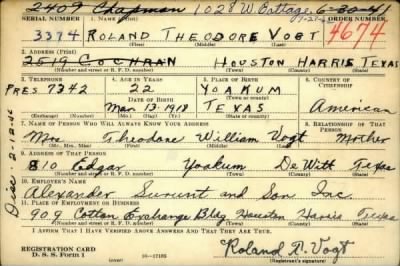 2409 Chapman 1028 W. Cottage 6-30-41
SERIAL NUMBER 1. NAME (Print) ORDER NUMBER
3374 ROLAND THEODORE VOGT 4674
(First) (Middle) (Last)
2. ADDRESS (Print)
2519 COCHRAN HOUSTON HARRIS TEXAS
(Number and street or R. F. D. number) (Town) (County) (State)
3. TELEPHONE 4. AGE IN YEARS 5. PLACE OF BIRTH 6. COUNTRY OF CITIZENSHIP
PRES 7342 22 YOAKUM American
DATE OF BIRTH
Mar 13-1918 TEXAS
7. NAME OF PERSON WHO WILL ALWAYS KNOW YOUR ADDRESS 8. RELATIONSHIP OF THAT PERSON
Mrs Theodore William Vogt Mother
(Mr., Mrs., Miss) (First) (Middle) (Last)
9. ADDRESS OF THAT PERSON
810 Edgar Yoakum De Witt Texas
(Number and street or R. F. D. number) (Town) (County) (State)
10. EMPLOYER'S NAME
Alexander and Son Inc.
11. PLACE OF EMPLOYMENT OR BUSINESS
909 Cotton Exchange Bldg Houston Harris Texas
(Number and street or R. F. D. number) (Town) (County) (State)
I AFFIRM THAT I HAVE VERIFIED ABOVE ANSWERS AND THAT THEY ARE TRUE.
REGISTRATION CARD
D. S. S. Form 1 16-17105
Roland T. Vogt
(Registrant's signature)
Disc 2-12-46